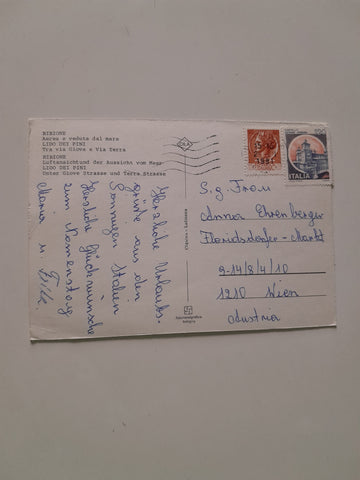 BIBIONE
Aerea e veduta dal mare
LIDO DEI PINI
Tra via Giove e Via Terra
BIBIONE
Luftansichtund der Aussicht vom Meer
LIDO DEI PINI
Unter Giove Strasse und Terra Strasse
Herzliche Urlaubs-
grüße aus dem
sonnigen Italien
Herzliche Glückwünsche
zum Namenstag
ITALIA
S.g. Frau
Anna Ehrenberger
Floridsdorfer-Markt
9-14/8/4/10
1210 Wien
Austria